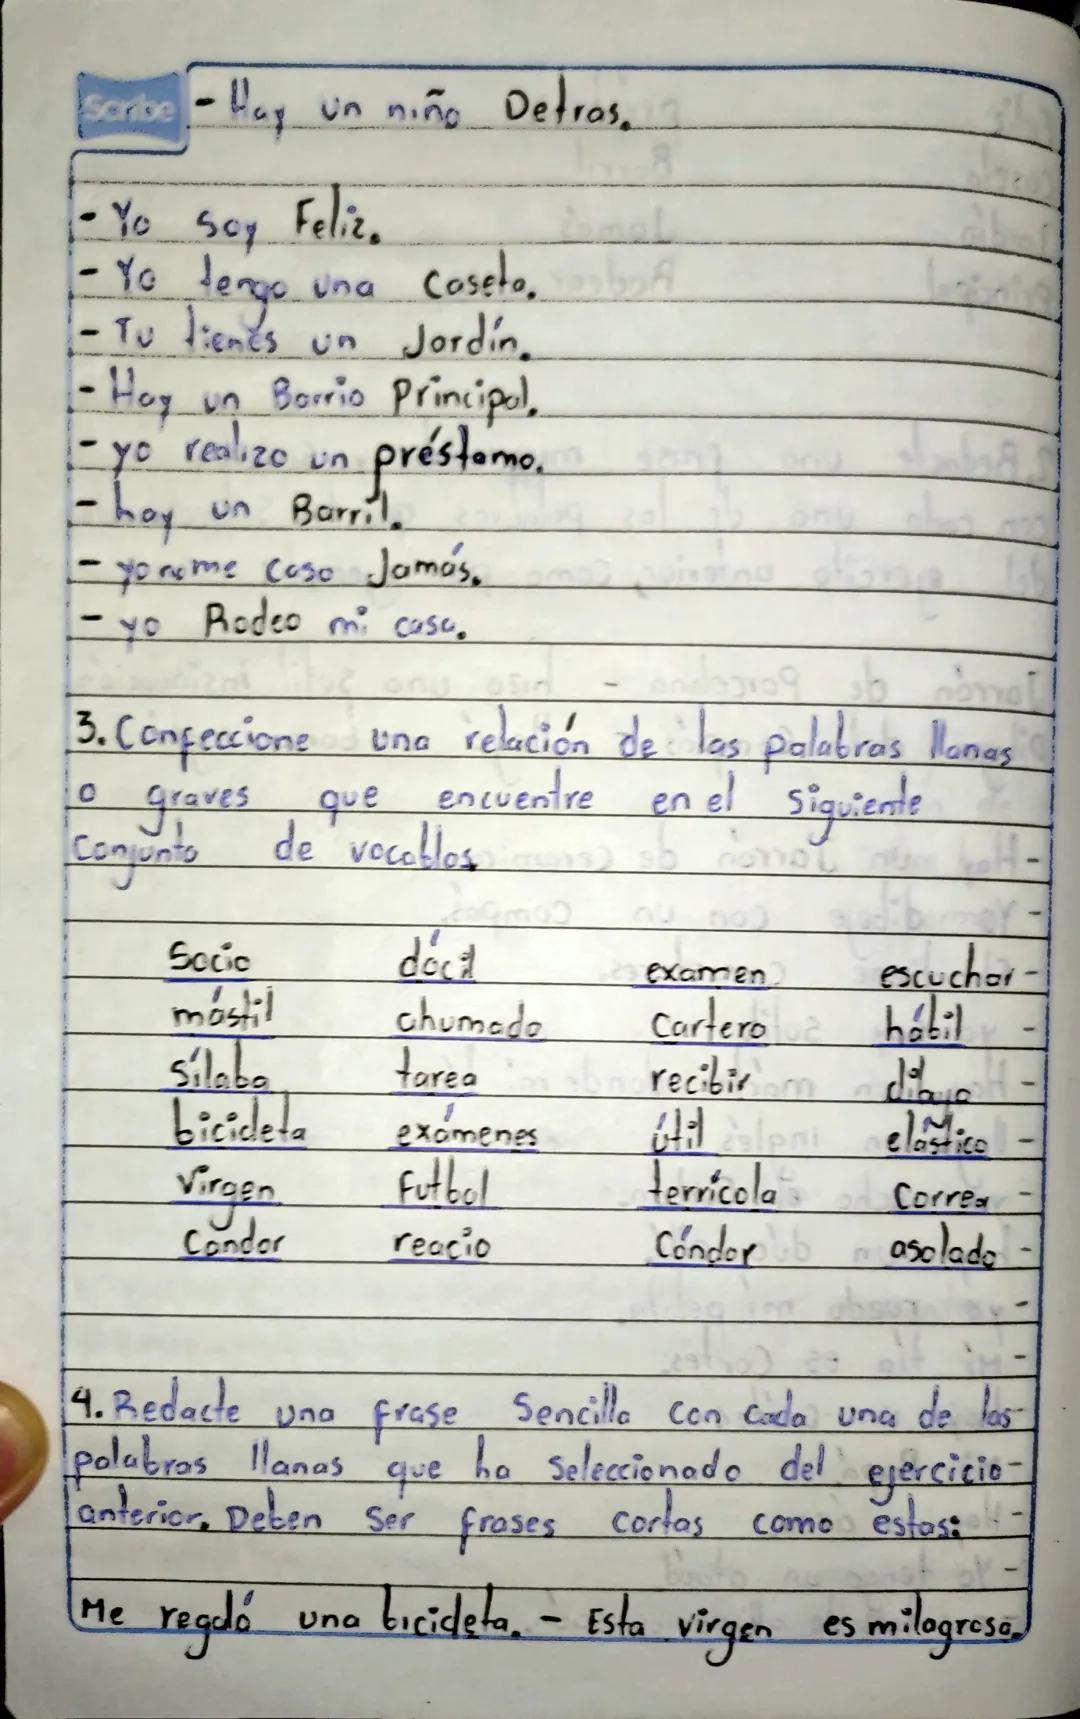 Scribe - Hay un niño Detras.
- Yo soy Feliz.
- Yo tengo una Caseta.
- Tu tienes un Jardín.
- Hay un Barrio Principal.
- yo realizo un préstamo.
- hay un Barril.
- yo no me caso Jamás.
- yo Rodeo mi casa.
3. Confeccione una relación de las palabras llanas
o graves que encuentre en el siguiente
Conjunto de vocablos.
Socio dócil examen escuchar
mástil ahumado Cartero hábil
sílaba tarea recibir dibujo
bicicleta exámenes útil elástico
Virgen Futbol terrícola Correa
Cóndor reacio Cóndor asolado
4. Redacte una frase Sencilla con cada una de las
palabras llanas que ha seleccionado del ejercicio
anterior. Deben ser frases cortas como estas:
Me regaló una bicicleta. - Esta virgen es milagrosa.